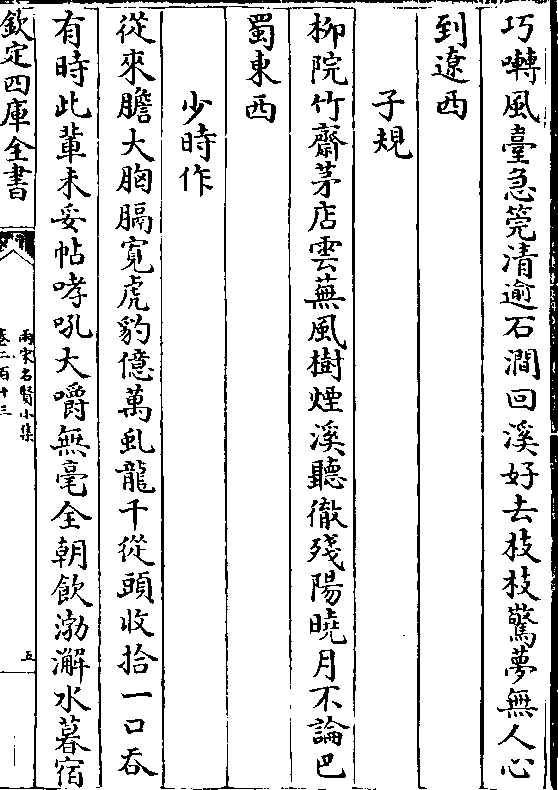 巧囀風臺急筦清逾石澗回溪好去枝枝驚夢無人心
到遼西
子規
柳院竹齋茅店雲蕪風樹煙溪聽徹殘陽曉月不論巴
蜀東西
少時作
從來膽大胸膈寬虎豹億萬虬龍千從頭收拾一口吞
有時此輩未妥帖哮吼大嚼無毫全朝飲渤澥水暮宿
欽定四庫全書
兩宋名賢小集
卷二百十三
五